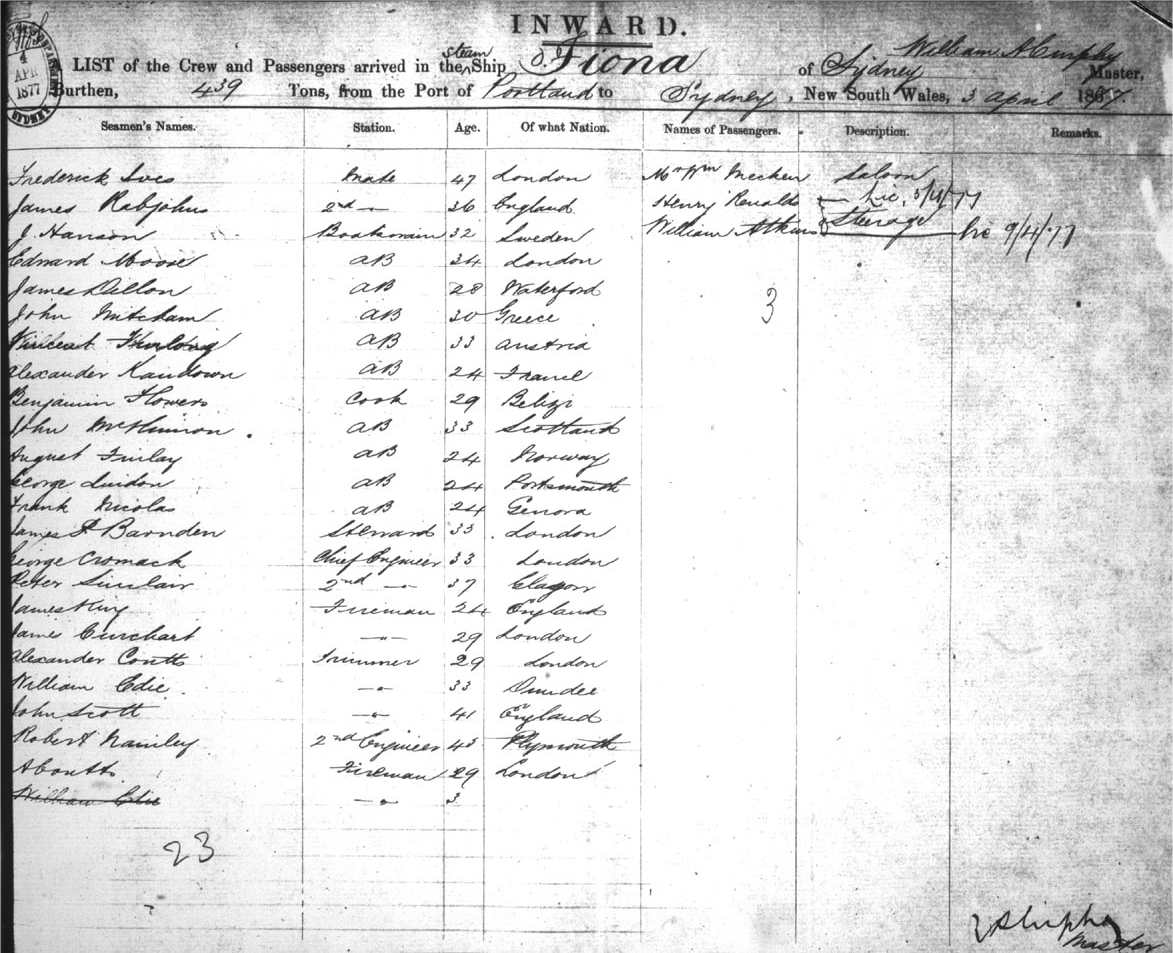 INWARD.
4
APR
1877
SYDNEY
LIST of the Crew and Passengers arrived in the steam Ship Fiona of Sydney William A Master,
Burthen, 439 Tons, from the Port of Portland to Sydney, New South Wales, 3 April 1877.
Seamen's Names. Station. Age. Of what Nation. Names of Passengers. Description. Remarks.
Frederick Ives Mate 47 London Mr Wm Saloon
James Rabjohns 2nd —"— 36 England Henry Renalds 5/4/77
J. Hanson Boatswain 32 Sweden William Atkins Steerage 9/4/77
Edward Moore AB 34 London
James Dillon AB 28 Waterford
3
John Mitcham AB 30 Greece
Vincent Furlong AB 33 Austria
Alexander AB 24 France
Benjamin Flowers Cook 29
John McKinnon AB 33 Scotland
August Finlay AB 24 Norway
George Lindon AB 24 Portsmouth
Frank Nicolas AB 24 Genova
James Barnden Steward 33 London
George Cromack Chief Engineer 33 London
Peter Sinclair 2nd —"— 37
James King Fireman 24 England
James —"— 29 London
Alexander Coutts Trimmer 29 London
William Edie —"— 33 Dundee
John Scott —"— 41 England
Robert 2nd Engineer 43 Plymouth
A Coutts Fireman 29 London
William Edie —"— 3
23
Master